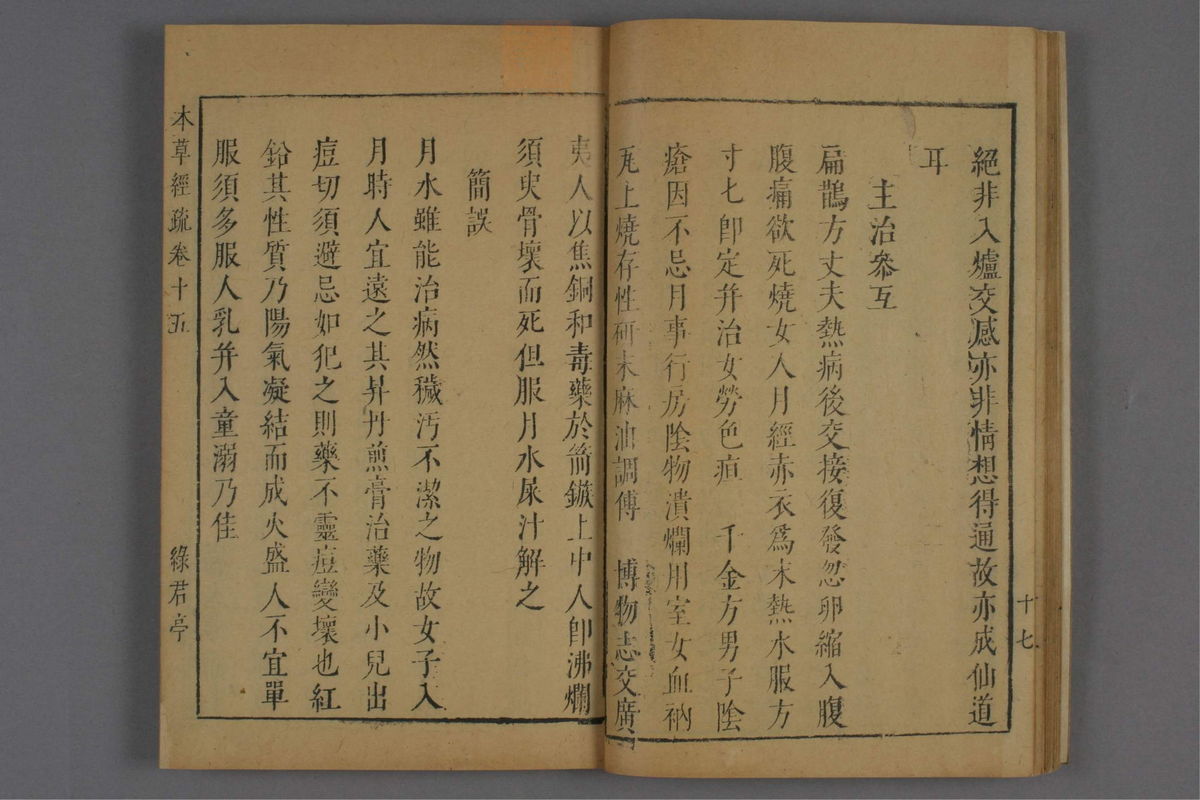 絕非入爐交感亦非情想得通故亦成仙道
耳
主治參互
扁鵲方丈夫熱病後交接復發忽卵縮入腹
腹痛欲死燒女人月經赤衣為末熱水服方
寸七卽定并治女勞色疸　千金方男子陰
瘡因不忌月事行房陰物潰爛用室女血衲
瓦上燒存性研末麻油調傅　博物志交廣
十七
夷人以焦銅和毒藥於箭鏃上中人卽沸爛
須臾骨壞而死但服月水屎汁解之
簡誤
月水雖能治病然穢汚不潔之物故女子入
月時人宜遠之其昇丹煎膏治藥及小兒出
痘切須避忌如犯之則藥不靈痘變壞也紅
鉛其性質乃陽氣凝結而成火盛人不宜單
服須多服人乳并入童溺乃佳
本草經疏卷十五　綠君亭